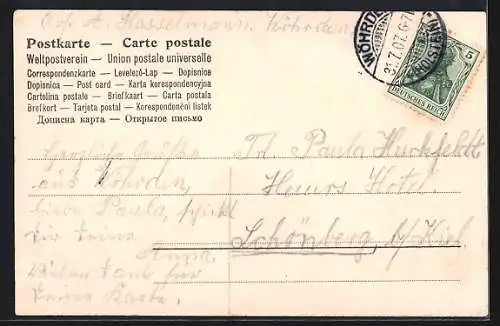 Abs. A. Hasselmann, Wöhrden
Postkarte — Carte postale
Weltpostverein — Union postale universelle
Correspondenzkarte — Levelező-Lap — Dopisnice
Dopisnica — Post card — Karta korespondencyjna
Cartolina postale — Briefkaart — Carta postala
Brefkort — Tarjeta postal — Korespondenční listek
Дописна карта — Открытое письмо
WÖHRDEN
31.7.07. 6-7
HOLSTEIN
5
DEUTSCHES REICH
Herzliche Grüße
aus Wöhrden,
liebe Paula, schickt
dir deine
Anna
Vielen Dank für
deine Karte.
Frl. Paula
Heuers Hotel
Schönberg, b/Kiel